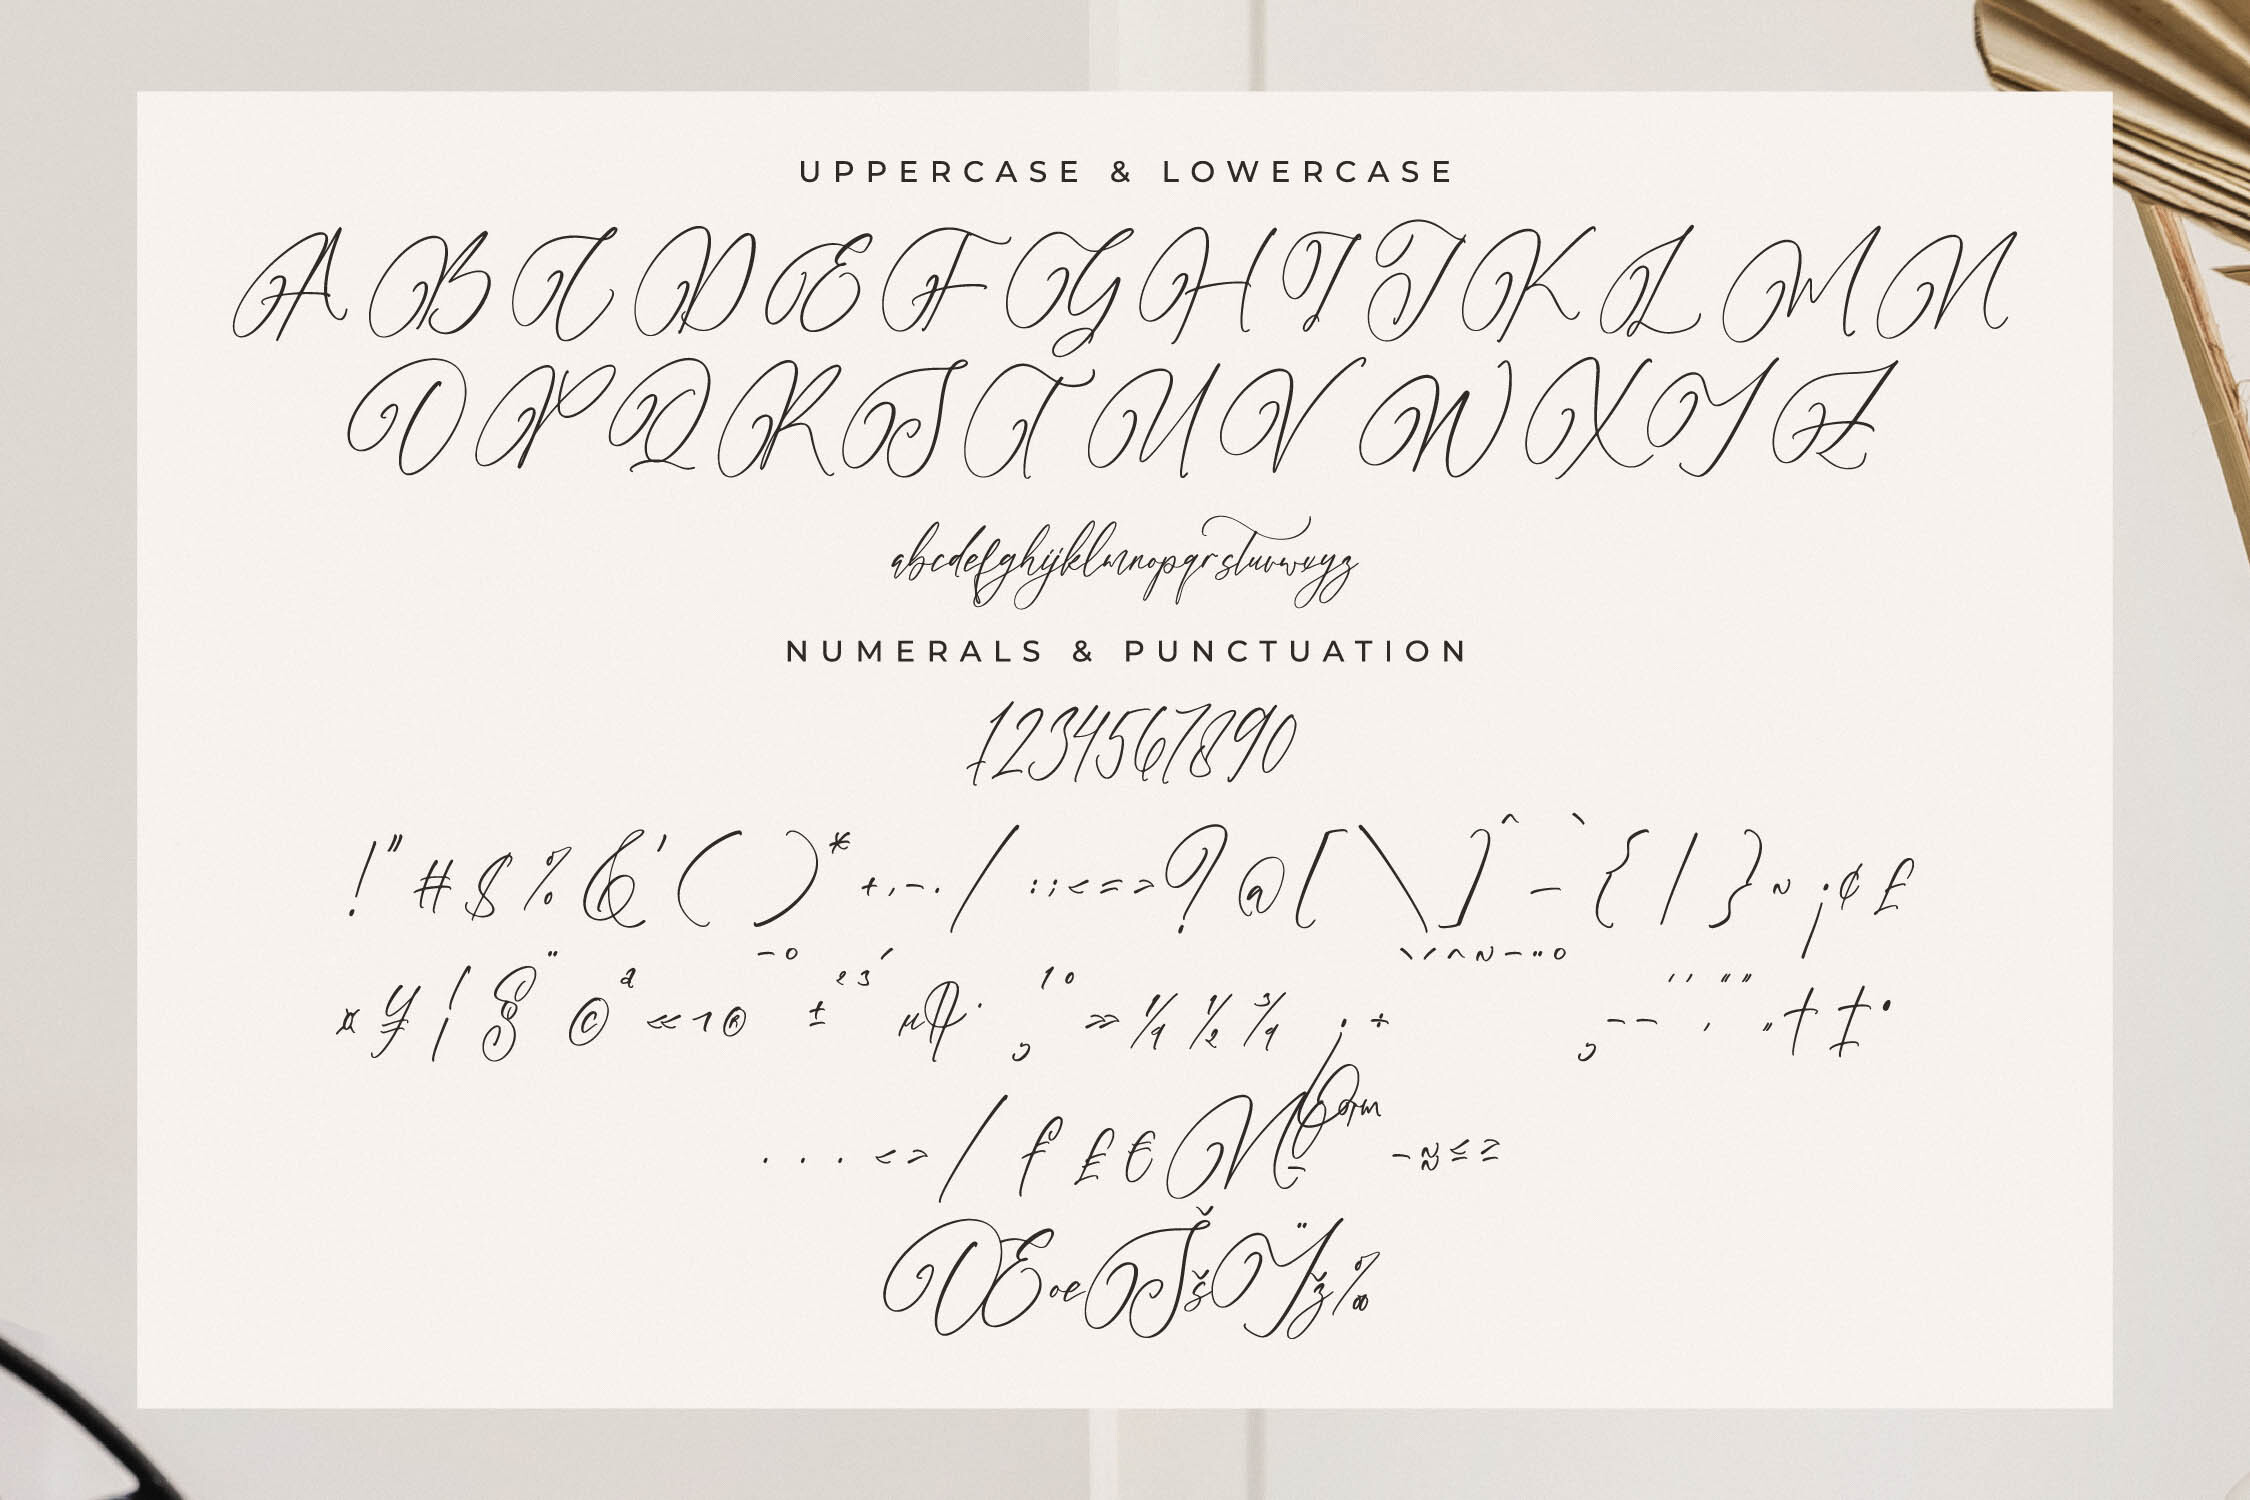 UPPERCASE & LOWERCASE
A B C D E F G H I J K L M N
O P Q R S T U V W X Y Z
abcdefghijklmnopqrstuvwxyz
NUMERALS & PUNCTUATION
1234567890
! " # $ % & ' ( ) * + , - . / : ; < = > ? @ [ \ ] ^ _ ` { | } ~ ¡ ¢ £
¤ ¥ ¦ § ¨ © ª « ¬ ® ¯ ° ± ² ³ ´ µ ¶ · ¸ ¹ º » ¼ ½ ¾ ¿ ÷ ˋ ˊ ˆ ˜ ¯ ¨ ˚ ¸ – — ‘ ’ ‚ “ ” „ † ‡ •
. . . ‹ › ⁄ ƒ ₤ € № Ω ™ − ≈ ≤ ≥
Œ œ Š š Ÿ ž ‰